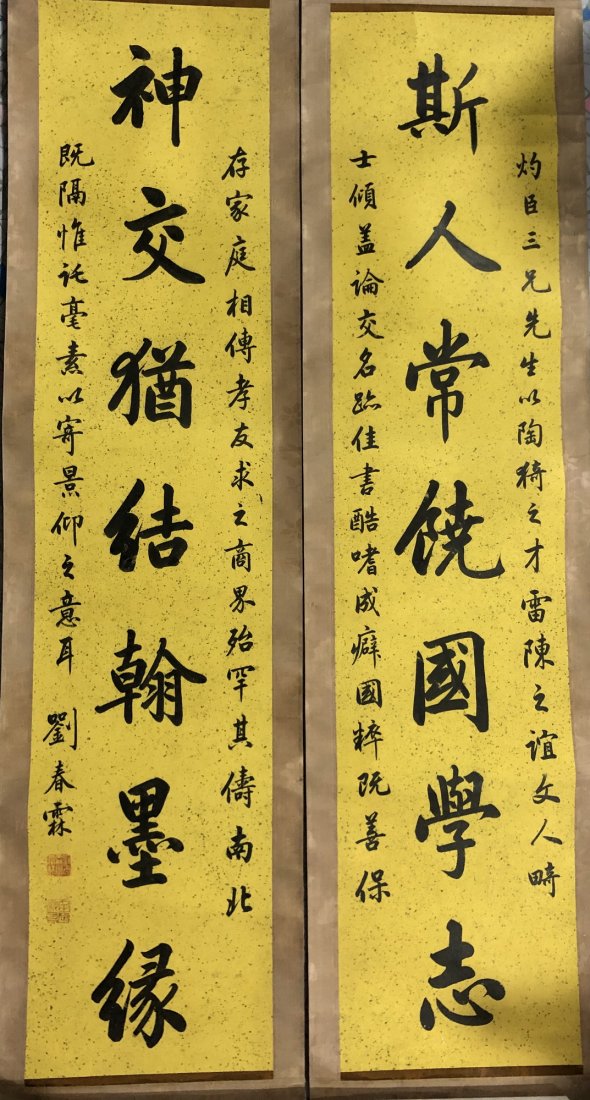 灼臣三兄先生以陶猗之才雷陳之誼文人畸
斯人常饒國學志
士傾蓋論交名跡佳書酷嗜成癖國粹既善保
存家庭相傳孝友求之商界殆罕其儔南北
神交猶結翰墨緣
既隔惟託毫素以寄景仰之意耳 劉春霖